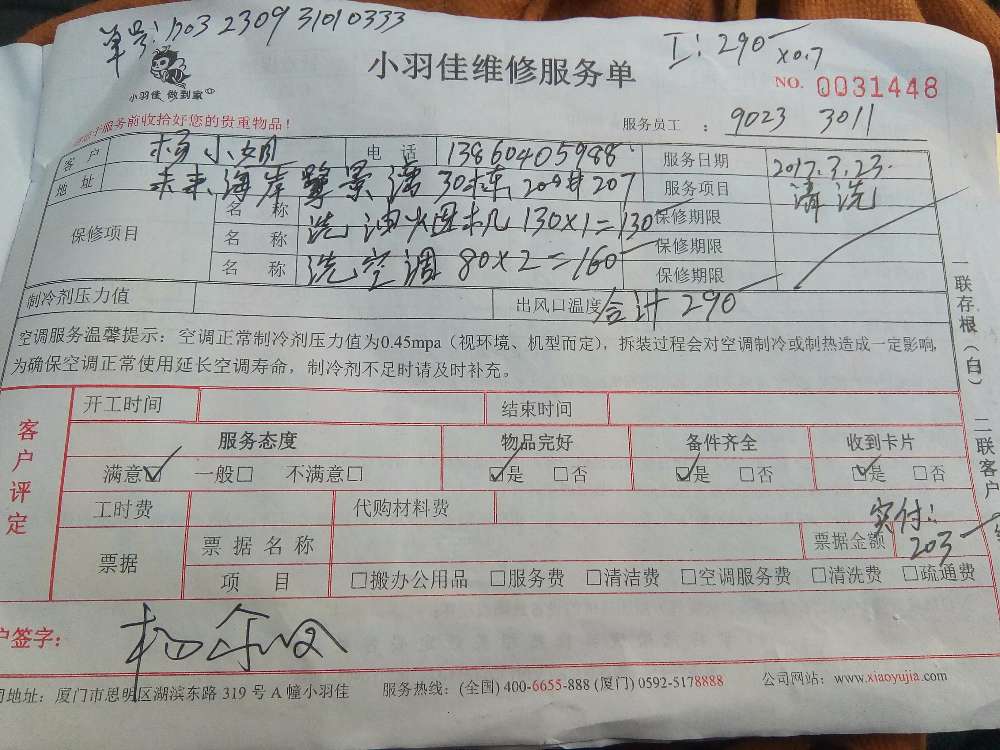 单号: 1703230931010333
工: 290 ×0.7
小羽佳 做到家
小羽佳维修服务单
NO. 0031448
服务前收拾好您的贵重物品!
服务员工 : 9023 3011
客户 杨小姐 电话 13860405988 服务日期 2017.3.23.
地址 未来海岸擎景湾30栋 20 207 服务项目 清洗
保修项目
名称 洗油烟机 130×1=130 保修期限
名称 保修期限
名称 洗空调 80×2=160 保修期限
制冷剂压力值 出风口温度 合计 290
空调服务温馨提示:空调正常制冷剂压力值为0.45mpa(视环境、机型而定),拆装过程会对空调制冷或制热造成一定影响,
为确保空调正常使用延长空调寿命,制冷剂不足时请及时补充。
一联存根(白) 二联客户
客户评定
开工时间 结束时间
服务态度 物品完好 备件齐全 收到卡片
满意☑ 一般□ 不满意□ ☑是 □否 ☑是 □否 ☑是 □否
工时费 代购材料费
实付: 203
票据 票据名称 票据金额
项目 □搬办公用品 □服务费 □清洁费 □空调服务费 □清洗费 □疏通费
户签字:
地址:厦门市思明区湖滨东路 319 号 A 幢小羽佳 服务热线:(全国) 400-6655-888 (厦门) 0592-5178888 公司网站:www.xiaoyujia.com